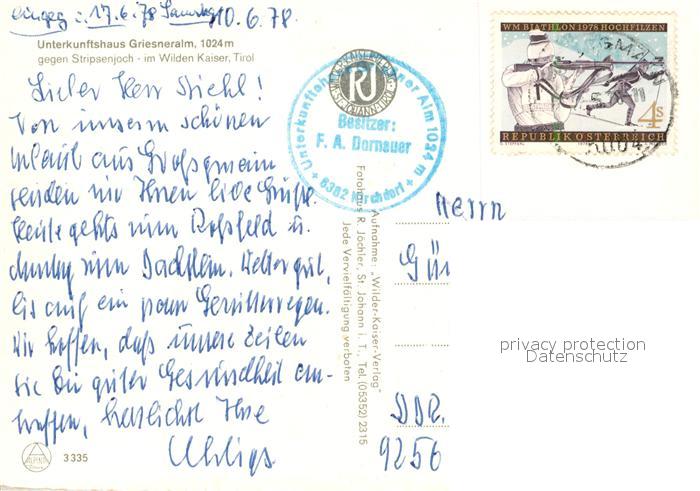 eingeg. : 17.6.78 Samstag
10.6.78.
Unterkunftshaus Griesneralm, 1024 m
gegen Stripsenjoch - im Wilden Kaiser, Tirol
Lieber Herr Diehl!
Von unserem schönen
Urlaub aus Großgmain
senden wir Ihnen liebe Grüße.
Heute gehts zum Roßfeld u.
Dachstein. Wetter gut,
bis auf ein paar Gewitterregen.
Wir hoffen, daß unsere Zeilen
Sie bei guter Gesundheit an-
treffen, herzlichst Ihre
Uhligs
RJ
Besitzer:
F. A. Dornauer
6382 Kirchdorf
WM BIATHLON 1978 HOCHFILZEN
4s
REPUBLIK ÖSTERREICH
Herrn
Gün
DDR.
9256
Aufnahme: „Wilder-Kaiser-Verlag"
Fotohaus R. Jöchler, St. Johann i. T., Tel. (05352) 2315
Jede Vervielfältigung verboten
privacy protection
Datenschutz
ALPINA
3335